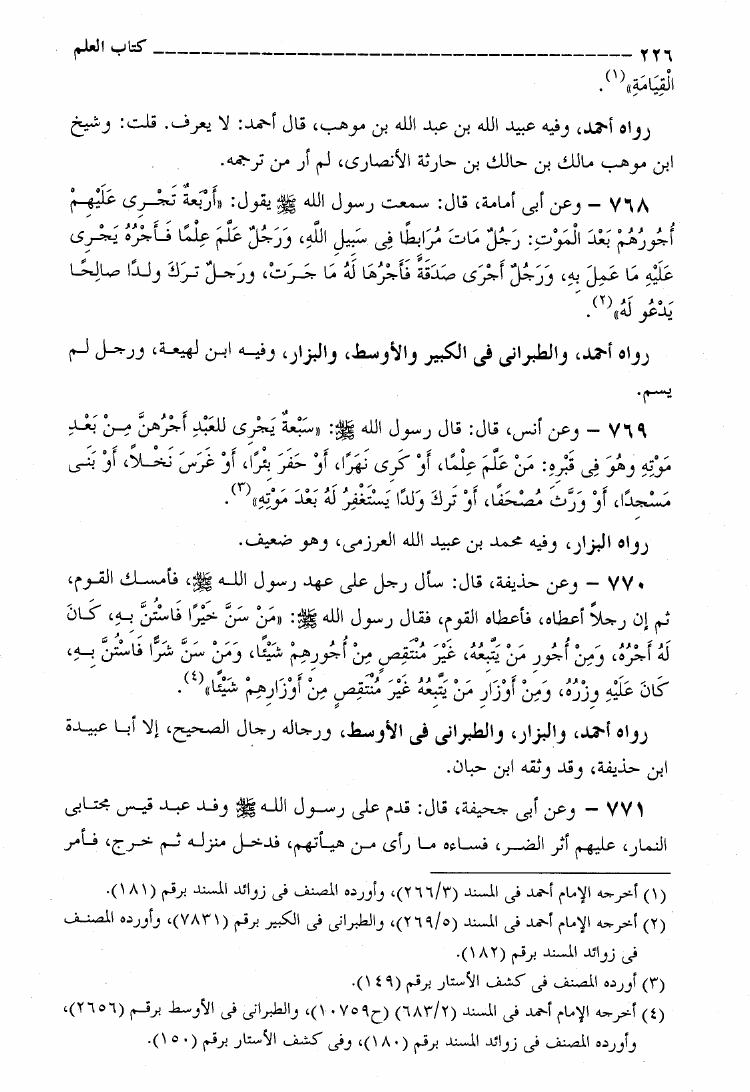 ٢٢٦ ــــــــــــــــــــــــــــــــــــــــــــــــــ كتاب العلم
الْقِيَامَةِ»(١).
رواه أحمد، وفيه عبيد الله بن عبد الله بن موهب، قال أحمد: لا يعرف. قلت: وشيخ
ابن موهب مالك بن حالك بن حارثة الأنصارى، لم أر من ترجمه.
٧٦٨ – وعن أبى أمامة، قال: سمعت رسول الله ﷺ يقول: «أَرْبَعَةٌ تَجْرِى عَلَيْهِمْ
أُجُورُهُمْ بَعْدَ الْمَوْتِ: رَجُلٌ مَاتَ مُرَابِطًا فِى سَبِيلِ اللَّهِ، وَرَجُلٌ عَلَّمَ عِلْمًا فَأَجْرُهُ يَجْرِى
عَلَيْهِ مَا عَمِلَ بِهِ، وَرَجُلٌ أَجْرَى صَدَقَةً فَأَجْرُهَا لَهُ مَا جَرَتْ، وَرَجُلٌ تَرَكَ ولدًا صالِحًا
يَدْعُو لَهُ»(٢).
رواه أحمد، والطبرانى فى الكبير والأوسط، والبزار، وفيه ابن لهيعة، ورجل لم
يسم.
٧٦٩ – وعن أنس، قال: قال رسول الله ﷺ: «سَبْعَةٌ يَجْرِى للعَبْدِ أَجْرُهُنَّ مِنْ بَعْدِ
مَوْتِهِ وهُوَ فِى قَبْرِهِ: مَنْ عَلَّمَ عِلْمًا، أَوْ كَرَى نَهَرًا، أَوْ حَفَرَ بِئْرًا، أَوْ غَرَسَ نَخْلاً، أَوْ بَنَى
مَسْجِدًا، أَوْ وَرَّثَ مُصْحَفًا، أَوْ تَركَ وَلَدًا يَسْتَغْفِرُ لَهُ بَعْدَ مَوْتِهِ»(٣).
رواه البزار، وفيه محمد بن عبيد الله العرزمى، وهو ضعيف.
٧٧٠ – وعن حذيفة، قال: سأل رجل على عهد رسول الله ﷺ، فأمسك القوم،
ثم إن رجلاً أعطاه، فأعطاه القوم، فقال رسول الله ﷺ: «مَنْ سَنَّ خَيْرًا فَاسْتُنَّ بِهِ، كَانَ
لَهُ أَجْرُهُ، وَمِنْ أُجُورِ مَنْ يَتَّبِعُهُ، غَيْرَ مُنْتَقِصٍ مِنْ أُجُورِهِمْ شَيْئًا، وَمَنْ سَنَّ شَرًّا فَاسْتُنَّ بِهِ،
كَانَ عَلَيْهِ وِزْرُهُ، وَمِنْ أَوْزَارِ مَنْ يَتَّبِعُهُ غَيْرَ مُنْتَقِصٍ مِنْ أَوْزَارِهِمْ شَيْئًا»(٤).
رواه أحمد، والبزار، والطبرانى فى الأوسط، ورجاله رجال الصحيح، إلا أبا عبيدة
ابن حذيفة، وقد وثقه ابن حبان.
٧٧١ – وعن أبى جحيفة، قال: قدم على رسول الله ﷺ وفد عبد قيس مجتابى
النمار، عليهم أثر الضر، فساءه ما رأى من هيأتهم، فدخل منزله ثم خرج، فأمر
(١) أخرجه الإمام أحمد فى المسند (٢٦٦/٣)، وأورده المصنف فى زوائد المسند برقم (١٨١).
(٢) أخرجه الإمام أحمد فى المسند (٢٦٩/٥)، والطبرانى فى الكبير برقم (٧٨٣١)، وأورده المصنف
فى زوائد المسند برقم (١٨٢).
(٣) أورده المصنف فى كشف الأستار برقم (١٤٩).
(٤) أخرجه الإمام أحمد فى المسند (٦٨٣/٢) (ح١٠٧٥٩)، والطبرانى فى الأوسط برقم (٢٦٥٦)،
وأورده المصنف فى زوائد المسند برقم (١٨٠)، وفى كشف الأستار برقم (١٥٠).